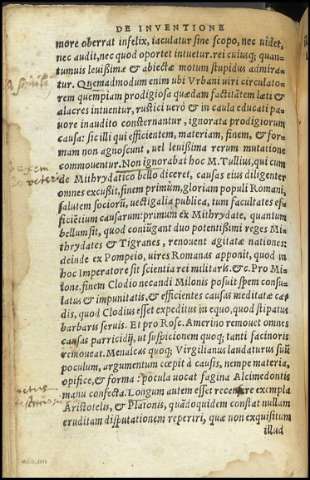 DE INVENTIONE
more oberrat infelix, iaculatur sine scopo, nec uidet,
nec audit, nec quod oportet intuetur. rei cuiusq; quan-
tumuis leuißimæ & abiectæ motum stupidus admira-
tur. Quemadmodum enim ubi Vrbani uiri circulato-
rem quempiam prodigiosa quædam factitãtem læti &
alacres intuentur, rustici uerò & in caula educati pa-
uore inaudito consternantur, ignorata prodigiorum
causa: sic illi qui efficientem, materiam, finem, & for-
mam non agnoscunt, uel leuißima rerum mutatione
commouentur. Non ignorabat hoc M. Tullius, qui cum
de Mithrydatico bello diceret, causas eius diligenter
omnes excußit. finem primùm, gloriam populi Romani,
salutem sociorũ, uectigalia publica, tum facultates ef-
ficiẽtium causarum: primum ex Mithrydate, quantum
bellum sit, quod coniũgant duo potentißimi reges Mi-
thrydates & Tigranes, renouent agitatæ nationes:
deinde ex Pompeio, uires Romanas apponit, quod in
hoc Imperatore sit scientia rei militaris. &c. Pro Mi-
lone, finem Clodio necandi Milonis posuit spem consu-
latus & impunitatis, & efficientes causas meditatæ cæ-
dis, quod Clodius esset expeditus in equo, quod stipatus
barbaris seruis. Et pro Rosc. Amerino remouet omnes
causas parricidij, ut suspicionem quoq; tanti facinoris
remoueat. Menalcas quoq; Virgilianus laudaturus suũ
poculum, argumentum cœpit à causis, nempe materia,
opifice, & forma: pocula uocat fagina Alcimedontis
manu confecta. Longum autem esset recensere exempla
Aristotelis, & Platonis, quãdoquidem constat nullam
eruditam disputationem reperiri, quæ non exquisitum
illud